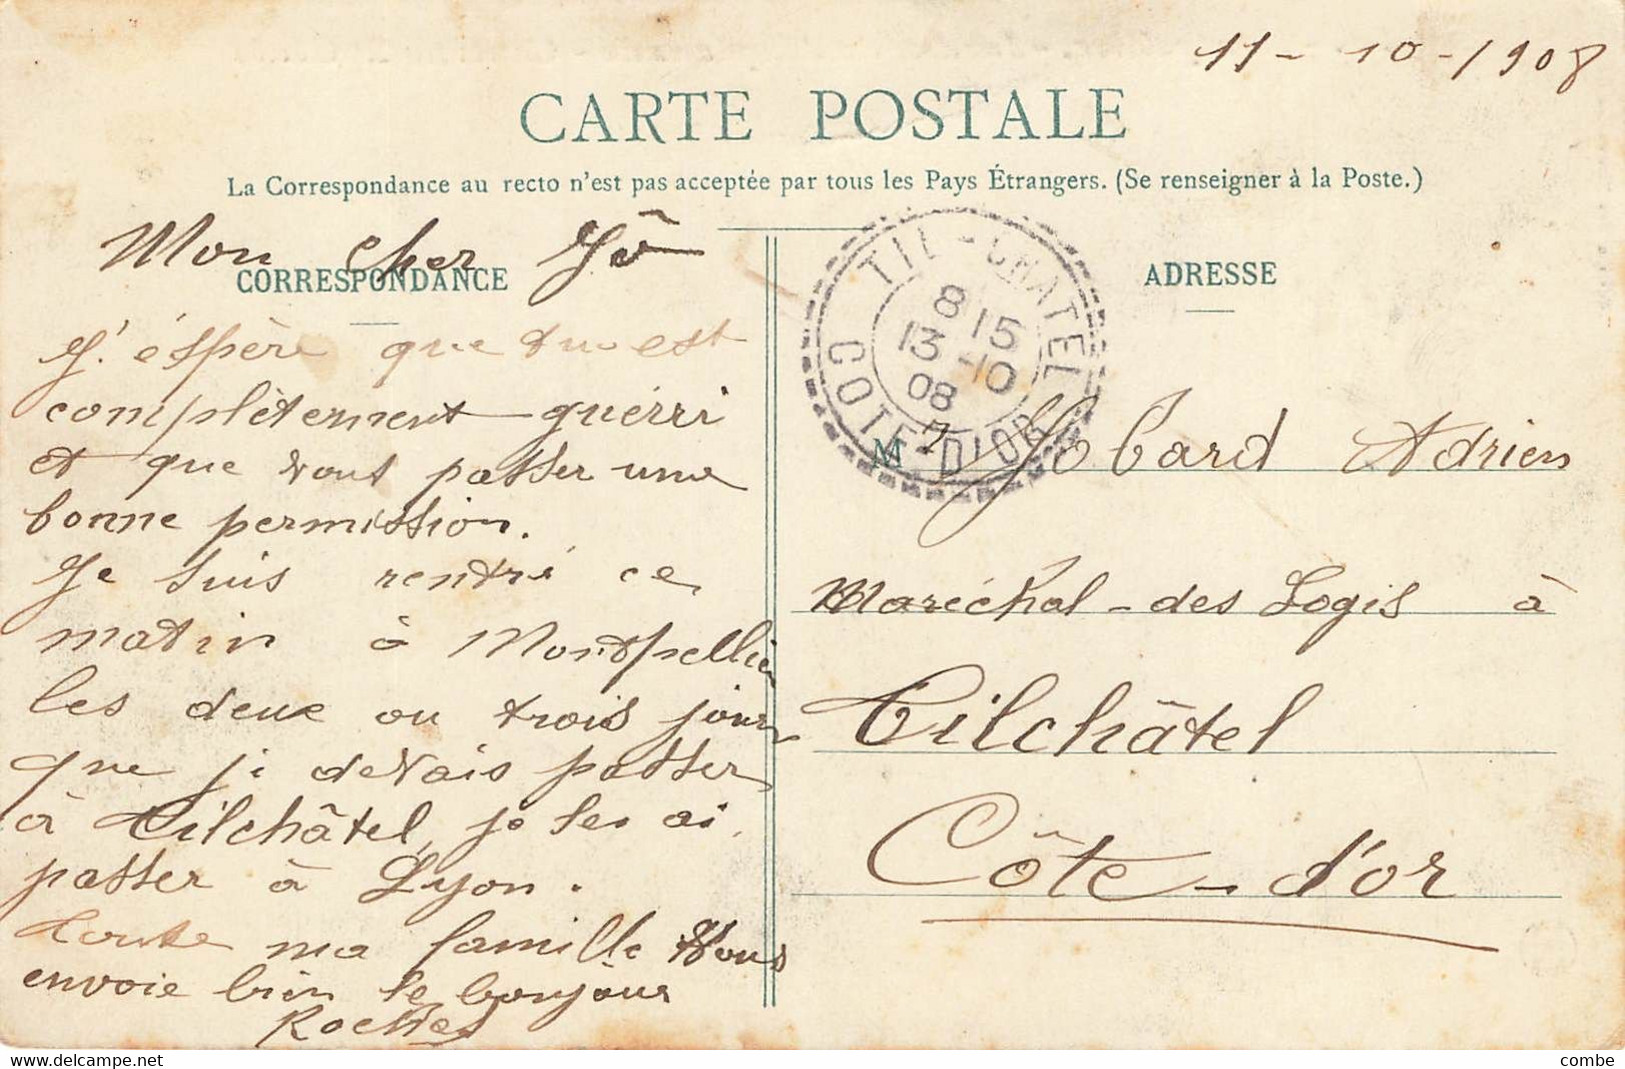 11 - 10 - 1908
CARTE POSTALE
La Correspondance au recto n'est pas acceptée par tous les Pays Étrangers. (Se renseigner à la Poste.)
Mon cher Jô
CORRESPONDANCE
J'éspère que tu est
complètement guérri
et que vout passer une
bonne permission.
Je suis rentré ce
matin à Montpellier
les deux ou trois jours
que ji devais passer
à Tilchâtel, je les ai
passer à Lyon.
Toute ma famille vous
envoie bien le bonjour
Roches
TIL-CHATEL
8 15
13 -10
08
COTE-D'OR
ADRESSE
M r Jobard Adrien
Maréchal-des Logis à
Tilchâtel
Côte-d'or
combe